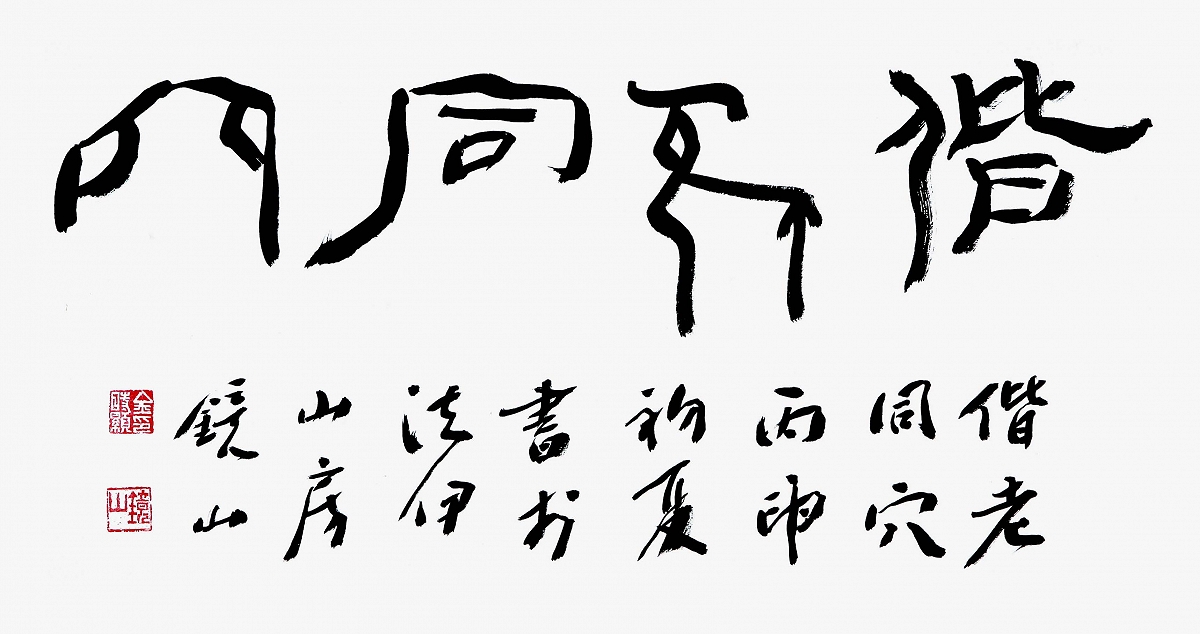 偕老同穴
偕老
同穴
丙申
初夏
書於
法伊
山房
鏡山
鏡山